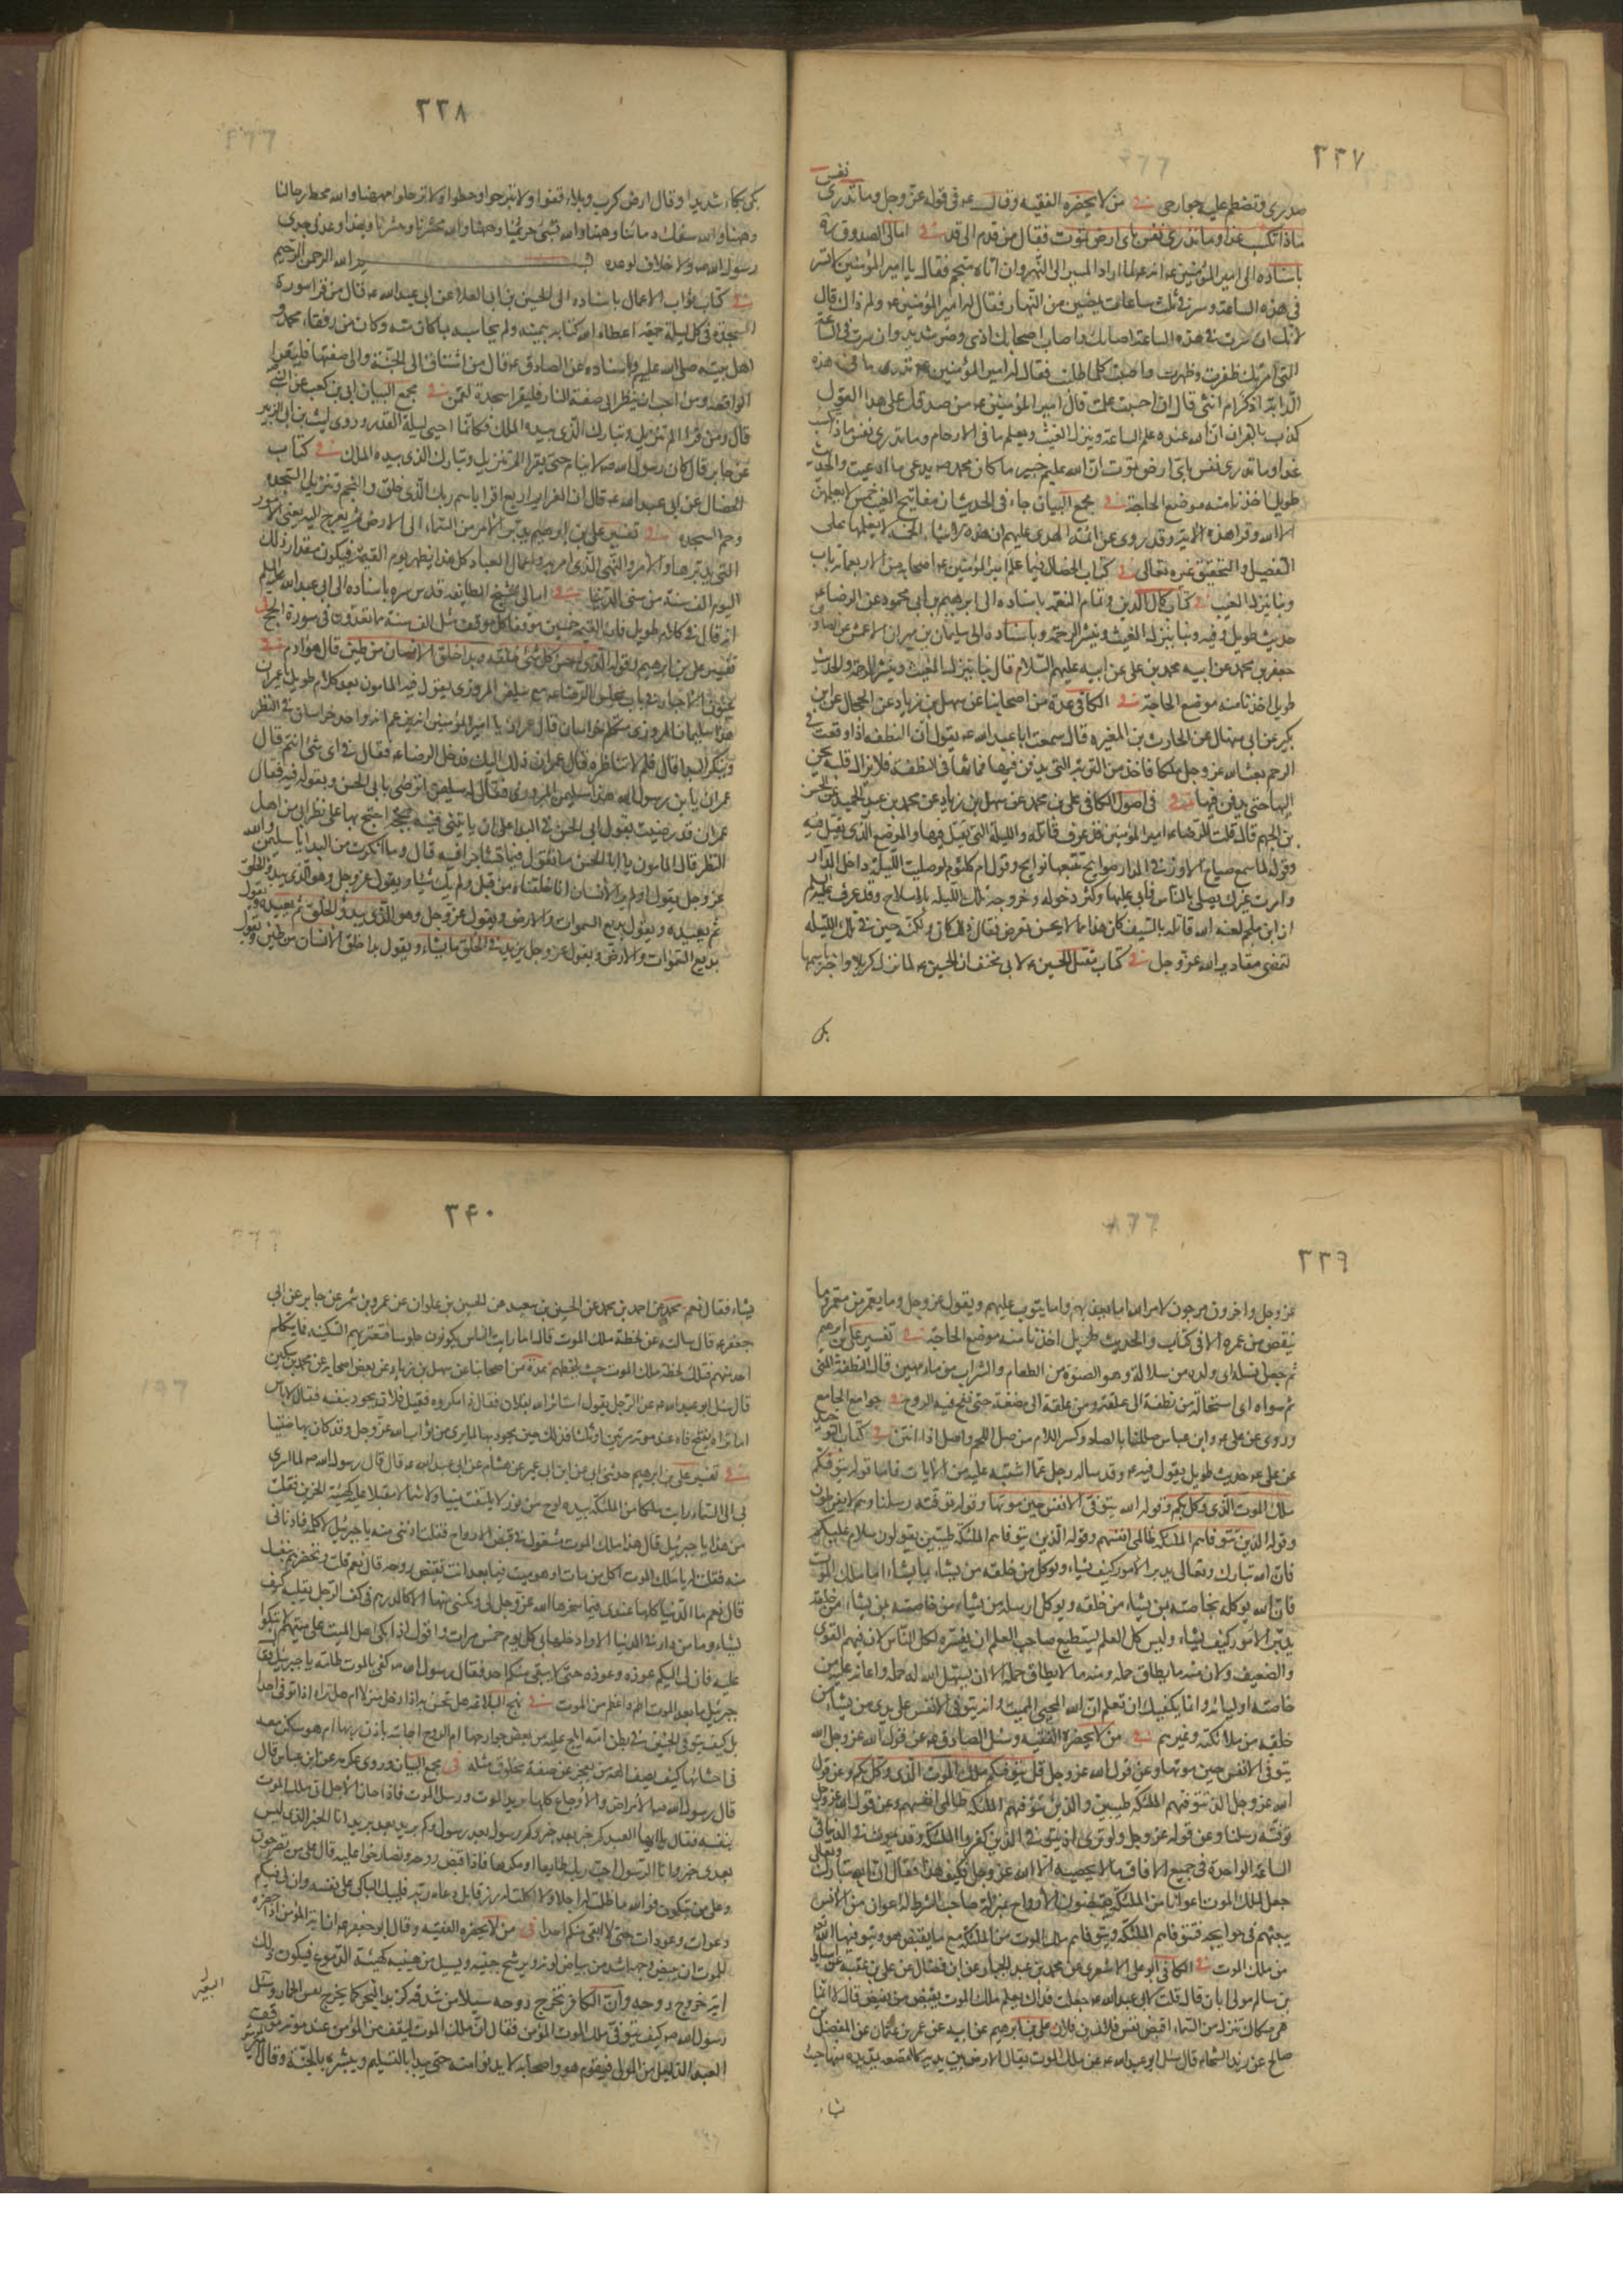 ٣٣٧
نفس
صدرى وتضطم عليه جوارحى فى من لا يحضره الفقيه وقال ع فى قوله عز وجل وما تدرى
ماذا تكسب غدا وما تدرى نفس باى ارض تموت فقال من قدم الى قدم فى امالى الصدوق ره
باسناده الى امير المؤمنين ع انه لما اراد المسير الى النهروان اتاه منجم فقال يا امير المؤمنين لا تسر
فى هذه الساعة وسر فى ثلث ساعات يمضين من النهار فقال له امير المؤمنين ع ولم ذاك قال
لانك ان سرت فى هذه الساعة اصابك واصاب اصحابك اذى وضر شديد وان سرت فى الساعة
التى امرتك ظفرت وظهرت واصبت كلما طلبت فقال له امير المؤمنين ع تدرى ما فى هذه
الدابة اذكر ام انثى قال ان حسبت علمت قال امير المؤمنين ع من صدقك على هذا القول
كذب بالقران ان الله عنده علم الساعة وينزل الغيث ويعلم ما فى الارحام وما تدرى نفس ماذا تكسب
غدا وما تدرى نفس باى ارض تموت ان الله عليم خبير ما كان محمد ص يدعى ما ادعيت والحديث
طويل اخذنا منه موضع الحاجة فى مجمع البيان جاء فى الحديث ان مفاتيح الغيب خمس لا يعلمهن
الا الله وقرا هذه الاية وقد روى عن ائمة الهدى عليهم ان هذه الاشياء الخمسة لا يعلمها على
التفصيل والتحقيق غيره تعالى فى كتاب الخصال فيما علم امير المؤمنين ع اصحابه من الاربعمائة باب
وبنا ينزل الغيث فى كتاب كمال الدين وتمام النعمة باسناده الى ابراهيم بن ابى محمود عن الرضا ع
حديث طويل وفيه وبنا ينزل الغيث وينشر الرحمة وباسناده الى سليمان بن مهران الاعمش عن الصادق
جعفر بن محمد عن ابيه محمد بن على عن ابيه عليهم السلام قال بنا ينزل الغيث وينشر الرحمة والحديث
طويل اخذنا منه موضع الحاجة فى الكافى عدة من اصحابنا عن سهل بن زياد عن الحجال عن ابن
بكير عن ابى منهال عن الحارث بن المغيرة قال سمعت ابا عبد الله ع يقول ان النطفة اذا وقعت فى
الرحم بعث الله عز وجل ملكا فاخذ من التربة التى يدفن فيها فماثها فى النطفة فلا يزال قلبه يحن
اليها حتى يدفن فيها فى اصول الكافى على بن محمد عن سهل بن زياد عن محمد بن عبد الحميد عن الحسن
بن الجهم قال قلت للرضا ع امير المؤمنين قد عرف قاتله والليلة التى يقتل فيها والموضع الذى يقتل فيه
وقوله لما سمع صياح الاوز فى الدار صوايح تتبعها نوايح وقول ام كلثوم لو صليت الليلة داخل الدار
وامرت غيرك يصلى بالناس فابى عليها وكثر دخوله وخروجه تلك الليلة بلا سلاح وقد عرف عليه السلم
ان ابن ملجم لعنه الله قاتله بالسيف كان هذا مما لا يحسن تعرضه فقال ذلك كان ولكنه خير فى تلك الليلة
لتمضى مقادير الله عز وجل فى كتاب مقتل الحسين ع لابى مخنف ان الحسين ع لما نزل كربلا واخبر باسمها
بكى
٣٣٨
بكى بكاء شديدا وقال ارض كرب وبلاء قفوا ولا تبرحوا وحطوا ولا ترحلوا فههنا والله محط رحالنا
وههنا والله سفك دمائنا وههنا والله تسبى حريمنا وههنا والله محشرنا ومنشرنا وبهذا وعدنى جدى
رسول الله ص ولا خلاف لوعده بسم الله الرحمن الرحيم
فى كتاب ثواب الاعمال باسناده الى الحسين بن ابى العلا عن ابى عبد الله ع قال من قرا سورة
السجدة فى كل ليلة جمعة اعطاه الله كتابه بيمينه ولم يحاسبه بما كان منه وكان من رفقاء محمد و
اهل بيته صلى الله عليهم وباسناده عن الصادق ع قال من اشتاق الى الجنة والى صفتها فليقرا
الواقعة ومن احب ان ينظر الى صفة النار فليقرا سجدة لقمن فى مجمع البيان ابى بن كعب عن النبى ص
قال ومن قرا الم تنزيل وتبارك الذى بيده الملك فكانما احيى ليلة القدر وروى ليث بن ابى الزبير
عن جابر قال كان رسول الله ص لا ينام حتى يقرا الم تنزيل وتبارك الذى بيده الملك فى كتاب
الخصال عن ابى عبد الله ع قال ان العزايم اربع اقرا باسم ربك الذى خلق والنجم وتنزيل السجدة
وحم السجدة فى تفسير على بن ابراهيم يدبر الامر من السماء الى الارض ثم يعرج اليه يعنى الامور
التى يدبرها والامر والنهى الذى امر به واعمال العباد كل هذا يظهر يوم القيمة فيكون مقدار ذلك
اليوم الف سنة من سنى الدنيا فى امالى شيخ الطايفة قدس سره باسناده الى ابى عبد الله عليه السلم
انه قال فى كلام طويل فان للقيمة خمسين موقفا كل موقف مثل الف سنة مما تعدون فى سورة الحج فى
تفسير على بن ابراهيم قوله الذى احسن كل شئ خلقه وبدا خلق الانسان من طين قال هو ادم فى
عيون الاخبار فى باب مجلس الرضا ع مع سليمن المروزى يقول فيه المامون بعد كلام طويل يا عمران
هذا سليمان المروزى متكلم خراسان قال عمران يا امير المؤمنين انه يزعم انه واحد خراسان فى النظر
وينكر البدا قال فلم لا تناظره قال عمران ذلك اليك فدخل الرضا ع فقال فى اى شئ انتم قال
عمران يا بن رسول الله هذا سليمن المروزى فقال له سليمن اترضى بابى الحسن وبقوله فيه فقال
عمران قد رضيت بقول ابى الحسن فى البدا على ان ياتينى فيه بحجة احتج بها على نظرائى من اهل
النظر قال المامون يا ابا الحسن ما تقول فيما تشاجرا فيه قال وما انكرت من البدا يا سليمن والله
عز وجل يقول اولم ير الانسان انا خلقناه من قبل ولم يك شيئا ويقول عز وجل وهو الذى يبدؤ الخلق
ثم يعيده ويقول بديع السموات والارض ويقول عز وجل وهو الذى يبدؤ الخلق ثم يعيده ويقول
بديع السموات والارض ويقول عز وجل يزيد فى الخلق ما يشاء ويقول بدا خلق الانسان من طين ويقول
٣٣٩
عز وجل واخرون مرجون لامر الله اما يعذبهم واما يتوب عليهم ويقول عز وجل وما يعمر من معمر وما
ينقص من عمره الا فى كتاب والحديث طويل اخذنا منه موضع الحاجة فى تفسير على بن ابرهيم
ثم جعل نسله اى ولده من سلالة وهو الصفوة من الطعام والشراب من ماء مهين قال النطفة المنى
ثم سواه اى استحاله من نطفة الى علقة ومن علقة الى مضغة حتى نفخ فيه الروح فى جوامع الجامع
وروى عن على ع وابن عباس صللنا بالصاد وكسر اللام من صل اللحم واصل اذا انتن فى كتاب التوحيد
عن على ع حديث طويل يقول فيه ع وقد ساله رجل عما اشتبه عليه من الايات فاما قوله يتوفيكم
ملك الموت الذى وكل بكم وقوله الله يتوفى الانفس حين موتها وقوله توفته رسلنا وهم لا يفرطون
وقوله الذين تتوفاهم الملئكة ظالمى انفسهم وقوله الذين تتوفاهم الملئكة طيبين يقولون سلام عليكم
فان الله تبارك وتعالى يدبر الامور كيف يشاء ويوكل من خلقه من يشاء بما يشاء اما ملك الموت
فان الله يوكله بخاصة من يشاء من خلقه ويوكل رسله من يشاء من خاصته بمن يشاء من خلقه
يدبر الامور كيف يشاء وليس كل العلم يستطيع صاحب العلم ان يفسره لكل الناس لان فيهم القوى
والضعيف ولان منه ما يطاق حمله ومنه ما لا يطاق حمله الا ان يسهل الله له حمله واعانه عليه من
خاصة اوليائه وانما يكفيك ان تعلم ان الله المحيى المميت وانه يتوفى الانفس على يدى من يشاء من
خلقه من ملائكته وغيرهم فى من لا يحضره الفقيه وسئل الصادق ع عن قول الله عز وجل الله
يتوفى الانفس حين موتها وعن قول الله عز وجل قل يتوفيكم ملك الموت الذى وكل بكم وعن قول
الله عز وجل الذين تتوفيهم الملئكة طيبين والذين تتوفيهم الملئكة ظالمى انفسهم وعن قول الله عز وجل
توفته رسلنا وعن قوله عز وجل ولو ترى اذ يتوفى الذين كفروا الملئكة وقد يموت فى الدنيا فى
الساعة الواحدة فى جميع الافاق ما لا يحصيه الا الله عز وجل فكيف هذا فقال ان الله تبارك وتعالى
جعل لملك الموت اعوانا من الملئكة يقبضون الارواح بمنزلة صاحب الشرطة له اعوان من الانس
يبعثهم فى حوايجه فتتوفاهم الملئكة ويتوفاهم ملك الموت من الملئكة مع ما يقبض هو ويتوفيها الله تعالى
من ملك الموت فى الكافى ابو على الاشعرى عن محمد بن عبد الجبار عن ابن فضال عن على بن عقبة عن اسباط
بن سالم مولى ابان قال قلت لابى عبد الله ع جعلت فداك يعلم ملك الموت بقبض من يقبض قال لا انما
هى صكاك تنزل من السماء اقبض نفس فلان بن فلان على بن ابرهيم عن ابيه عن عمرو بن عثمان عن المفضل بن
صالح عن زيد الشحام قال سئل ابو عبد الله ع عن ملك الموت يقال الارض بين يديه كالقصعة يمد يده منها حيث
يشاء
٣٤٠
يشاء فقال نعم محمد عن احمد بن محمد عن الحسين بن سعيد عن الحسين بن علوان عن عمرو بن شمر عن جابر عن ابى
جعفر ع قال سالته عن لحظة ملك الموت قال اما رايت الناس يكونون جلوسا فتعتريهم السكينة فما يتكلم
احد منهم فتلك لحظة ملك الموت حيث يلحظهم عدة من اصحابنا عن سهل بن زياد عن بعض اصحابه عن محمد بن سكين
قال سئل ابو عبد الله ع عن الرجل يقول استاثر الله بفلان فقال ذا مكروه فقيل فلان يجود بنفسه فقال لا باس
اما تراه يفتح فاه عند موته مرتين او ثلثا فذلك حين يجود بها لما يرى من ثواب الله عز وجل وقد كان بها ضنينا
فى تفسير على بن ابراهيم حدثنى ابى عن ابن ابى عمير عن هشام عن ابى عبد الله ع قال قال رسول الله ص لما اسرى
بى الى السماء رايت ملكا من الملئكة بيده لوح من نور لا يلتفت يمينا ولا شمالا مقبلا عليه كهيئة الحزين فقلت
من هذا يا جبرئيل قال هذا ملك الموت مشغول فى قبض الارواح فقلت ادننى منه يا جبرئيل لاكلمه فادنانى
منه فقلت له يا ملك الموت اكل من مات او هو ميت فيما بعد انت تقبض روحه قال نعم قلت وتحضرهم بنفسك
قال نعم ما الدنيا كلها عندى فيما سخرها الله عز وجل لى ومكننى منها الا كالدرهم فى كف الرجل يقلبه كيف
يشاء وما من دار فى الدنيا الا وادخلها فى كل يوم خمس مرات واقول اذا بكى اهل الميت على ميتهم لا تبكوا
عليه فان لى اليكم عودة وعودة حتى لا يبقى منكم احد فقال رسول الله ص كفى بالموت طامة يا جبرئيل فقال
جبرئيل ما بعد الموت اطم واعظم من الموت فى نهج البلاغة هل تحس به اذا دخل منزلا ام هل تراه اذا توفى احدا
بل كيف يتوفى الجنين فى بطن امه ايلج عليه من بعض جوارحها ام الروح اجابته باذن ربها ام هو ساكن معه
فى احشائها كيف يصف الهه من يعجز عن صفة مخلوق مثله فى مجمع البيان وروى عكرمة عن ابن عباس قال
قال رسول الله ص الامراض والاوجاع كلها بريد الموت ورسل الموت فاذا حان الاجل اتى ملك الموت
بنفسه فقال يا ايها العبد كم خبر بعد خبر وكم رسول بعد رسول وكم بريد بعد بريد انا الخبر الذى ليس
بعدى خبر وانا الرسول اجب ربك طايعا او مكرها فاذا قبض روحه وتصارخوا عليه قال على من تصرخون
وعلى من تبكون فوالله ما ظلمت له اجلا ولا اكلت له رزقا بل دعاه ربه فليبك الباكى على نفسه وان لى فيكم
دعوات وعودات حتى لا ابقى منكم احدا فى من لا يحضره الفقيه وقال ابو جعفر ع ان اية المؤمن اذا حضره
الموت ان يبيض وجهه اشد من بياض لونه ويرشح جبينه ويسيل من عينيه كهيئة الدموع فيكون ذلك
اية خروج روحه وان الكافر تخرج روحه سيلا من شدقه كزبد البعير كما يخرج نفس الحمار وسئل
البعير
رسول الله ص كيف يتوفى ملك الموت المؤمن فقال ان ملك الموت ليقف من المؤمن عند موته موقف
العبد الذليل من المولى فيقوم هو واصحابه لا يدنو منه حتى يبدا بالتسليم ويبشره بالجنة وقال